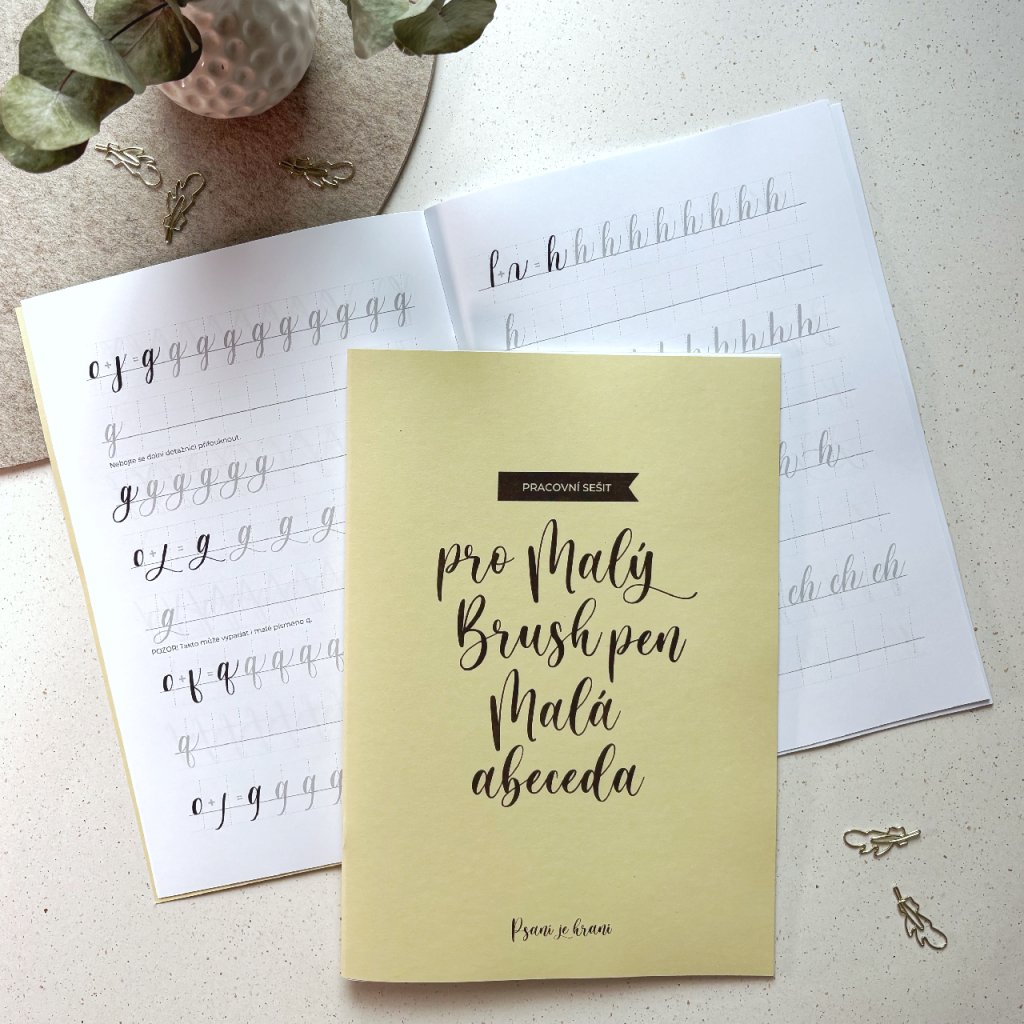 o + j = g g g g g g g g g g
g
Nebojte se dolní dotažnici přifouknout.
g g g g g g
o + j = g g g g
g
POZOR! Takto může vypadat i malé písmeno q.
o + f = q q q q q
q
o + j = g g g g
l + n = h h h h h h h h h
h
h h h h
h h
ch ch ch
PRACOVNÍ SEŠIT
pro Malý
Brush pen
Malá
abeceda
Psaní je hraní